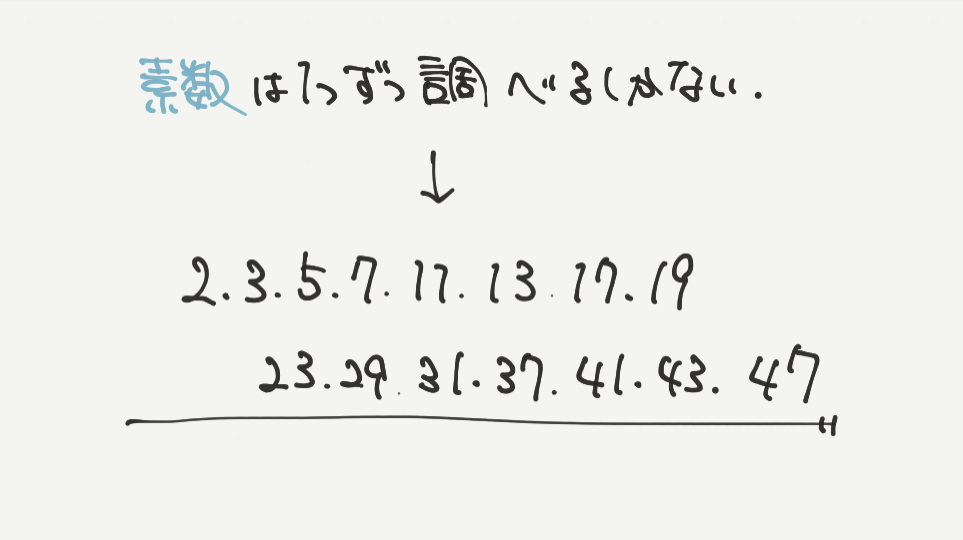 素数は1つずつ調べるしかない.
↓
2.3.5.7.11.13.17.19
23.29.31.37.41.43.47